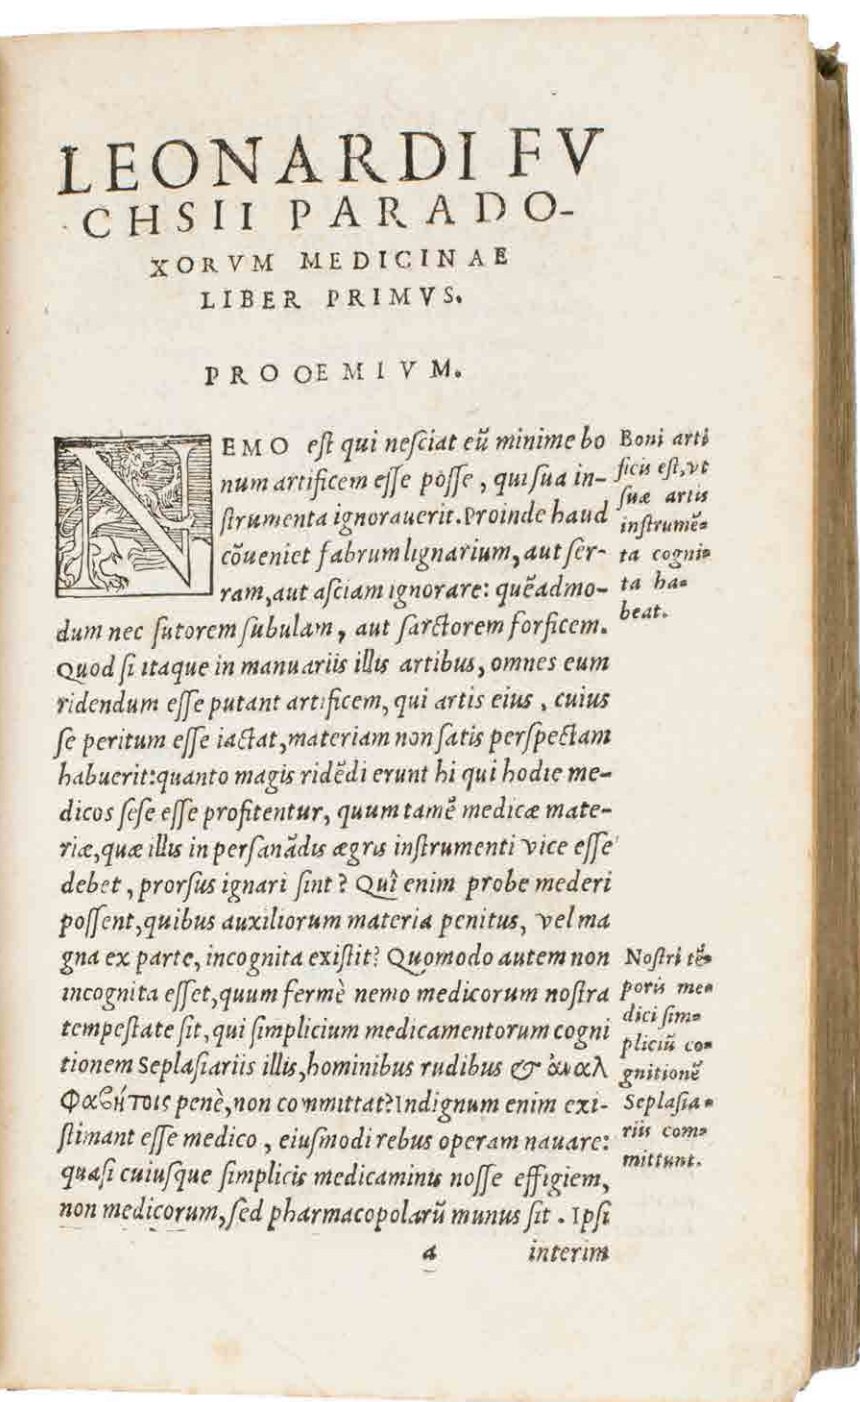 LEONARDI FV
CHSII PARADO-
XORVM MEDICINAE
LIBER PRIMVS.
PROOEMIVM.
NEMO eſt qui neſciat eũ minime bo
num artificem eſſe poſſe, qui ſua in-
ſtrumenta ignorauerit. Proinde haud
cõueniet fabrum lignarium, aut ſer-
ram, aut aſciam ignorare: quẽadmo-
dum nec ſutorem ſubulam, aut ſarctorem forficem.
Quod ſi itaque in manuariis illis artibus, omnes eum
ridendum eſſe putant artificem, qui artis eius, cuius
ſe peritum eſſe iactat, materiam non ſatis perſpectam
habuerit: quanto magis ridẽdi erunt hi qui hodie me-
dicos ſeſe eſſe profitentur, quum tamẽ medicæ mate-
riæ, quæ illis in perſanãdis ægris inſtrumenti vice eſſe
debet, prorſus ignari ſint? Quî enim probe mederi
poſſent, quibus auxiliorum materia penitus, vel ma
gna ex parte, incognita exiſtit? Quomodo autem non
incognita eſſet, quum fermè nemo medicorum noſtra
tempeſtate ſit, qui ſimplicium medicamentorum cogni
tionem Seplaſiariis illis, hominibus rudibus & ἀναλ
φαβήτοις penè, non committat? Indignum enim exi-
ſtimant eſſe medico, eiuſmodi rebus operam nauare:
quaſi cuiuſque ſimplicis medicaminis noſſe effigiem,
non medicorum, ſed pharmacopolarũ munus ſit. Ipſi
a interim
Boni arti
ficis eſt, vt
ſuæ artis
inſtrumẽ-
ta cogni-
ta ha-
beat.
Noſtri tẽ-
poris me-
dici ſim-
pliciũ co-
gnitionẽ
Seplaſia-
riis com-
mittunt.